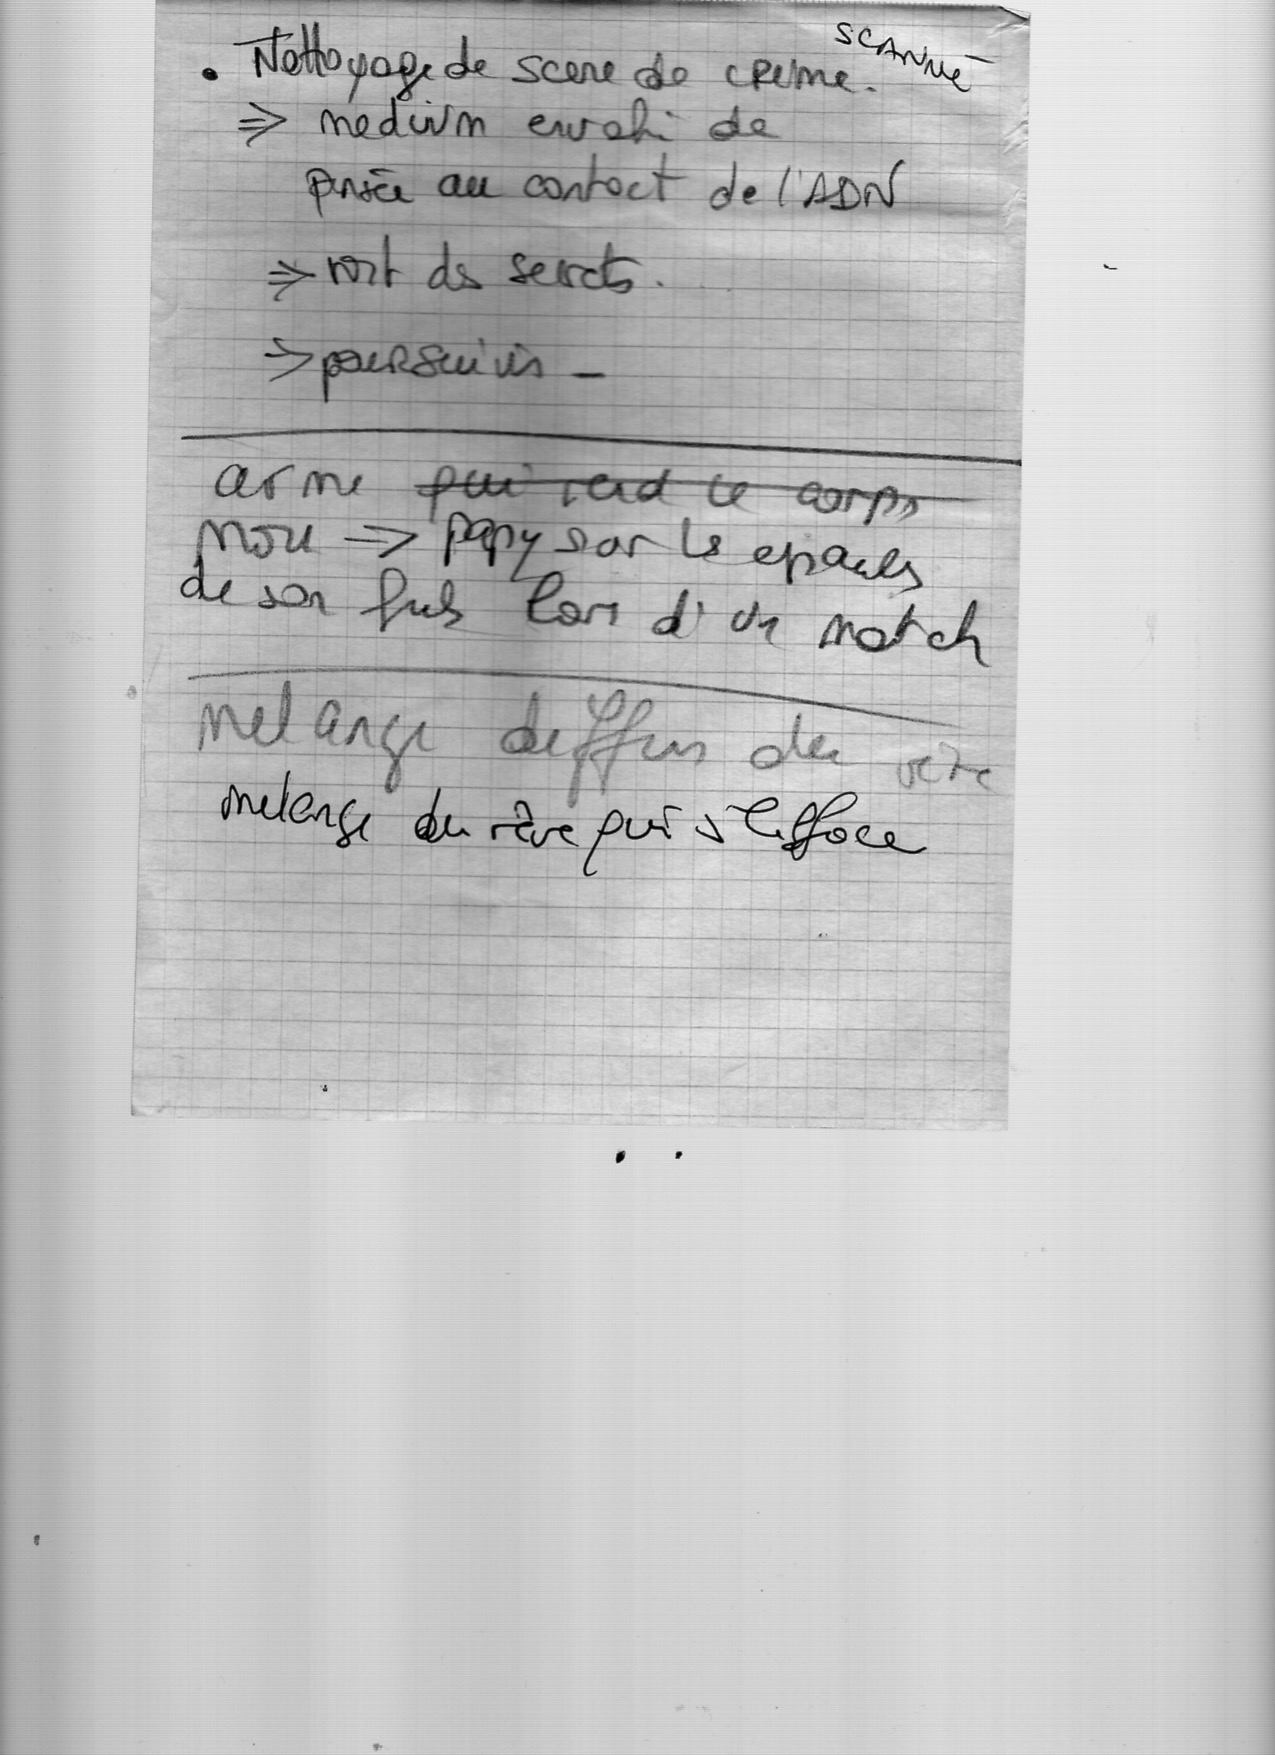 SCANNÉ
. Nettoyage de scene de crime.
⇒ medium envahi de
pensée au contact de l'ADN
⇒ voit des secrets.
⇒ poursuivis -
arme qui rend le corps
mou ⇒ papy sur les epaules
de son fils lors d'un match
melange diffus du
melange du rêve qui s'efface